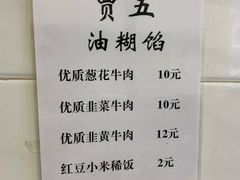 贾五
油糊馅
优质葱花牛肉 10元
优质韭菜牛肉 10元
优质韭黄牛肉 12元
红豆小米稀饭 2元